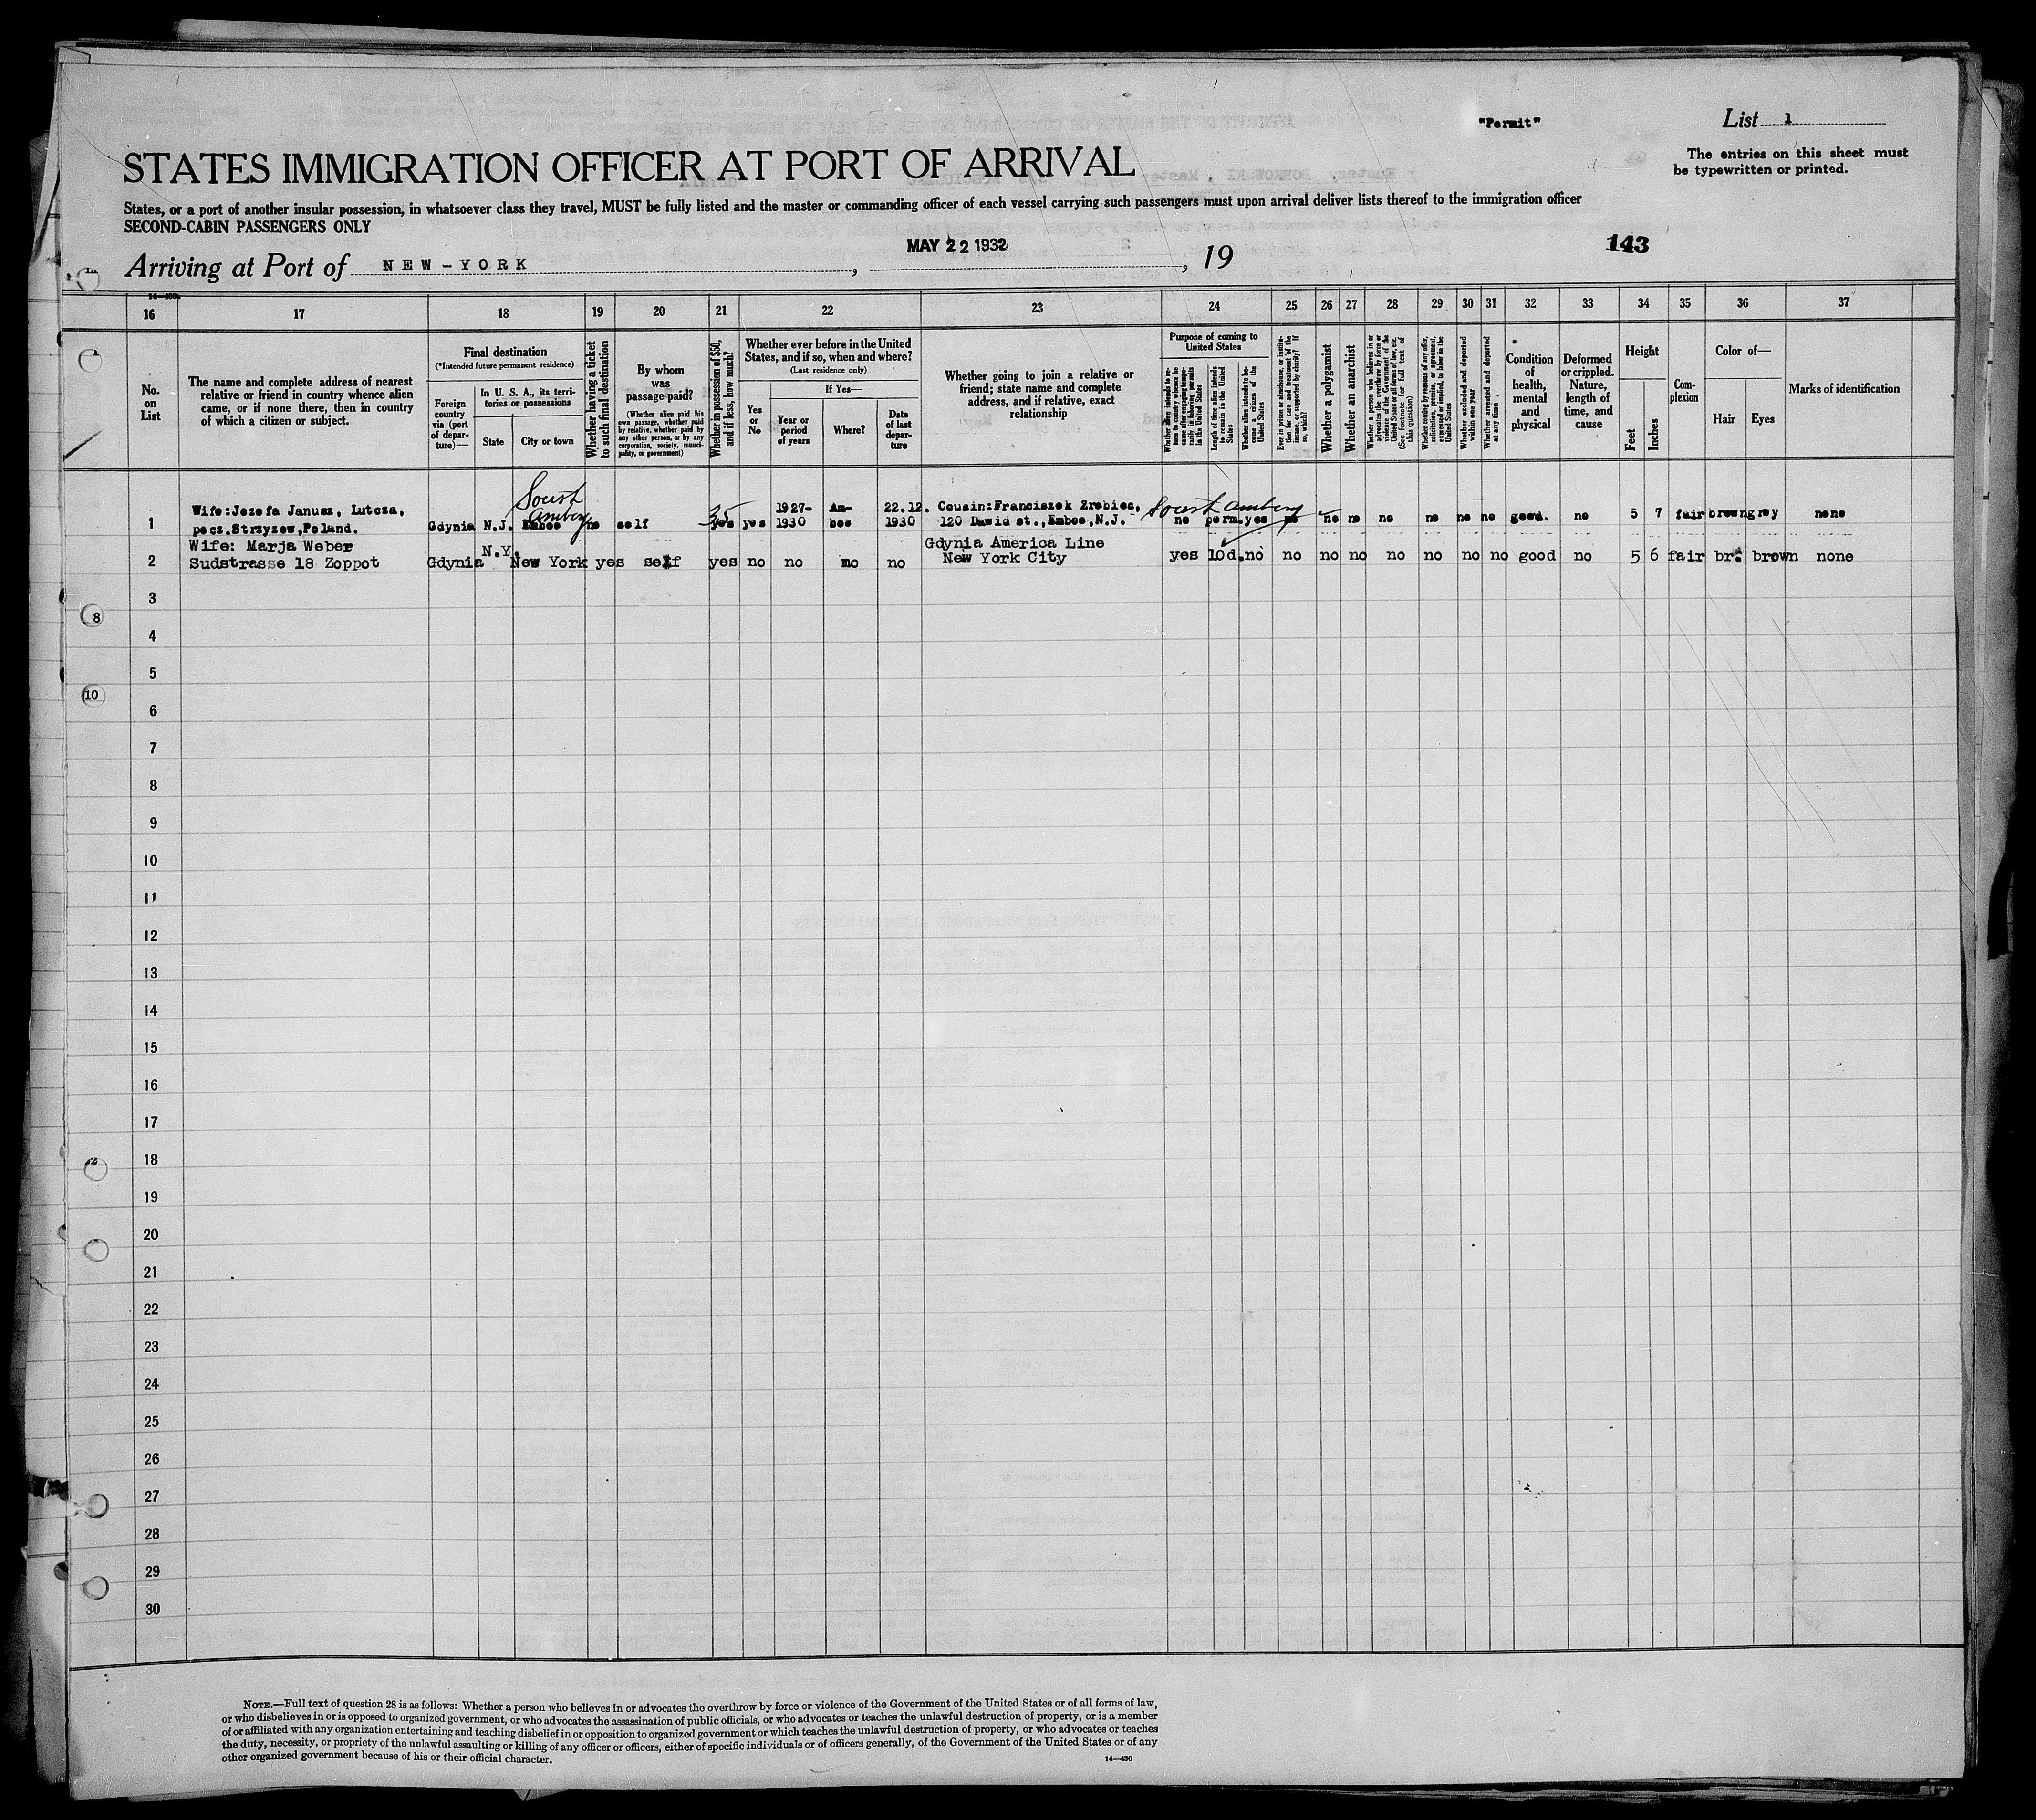 "Permit"
List 1
The entries on this sheet must
be typewritten or printed.
STATES IMMIGRATION OFFICER AT PORT OF ARRIVAL
States, or a port of another insular possession, in whatsoever class they travel, MUST be fully listed and the master or commanding officer of each vessel carrying such passengers must upon arrival deliver lists thereof to the immigration officer
SECOND-CABIN PASSENGERS ONLY
MAY 22 1932
143
Arriving at Port of NEW-YORK , , 19
16 17 18 19 20 21 22 23 24 25 26 27 28 29 30 31 32 33 34 35 36 37
No.
on
List
The name and complete address of nearest
relative or friend in country whence alien
came, or if none there, then in country
of which a citizen or subject.
Final destination
(*Intended future permanent residence)
Foreign
country
via (port
of depar-
ture)—
In U. S. A., its terri-
tories or possessions
State
City or town
Whether having a ticket
to such final destination
By whom
was
passage paid?
(Whether alien paid his
own passage, whether paid
by relative, whether paid by
any other person, or by any
corporation, society, munici-
pality, or government)
Whether in possession of $50,
and if less, how much?
Whether ever before in the United
States, and if so, when and where?
(Last residence only)
Yes
or
No
If Yes—
Year or
period
of years
Where?
Date
of last
depar-
ture
Whether going to join a relative or
friend; state name and complete
address, and if relative, exact
relationship
Purpose of coming to
United States
Whether alien intends to re-
turn to country whence he
came after engaging tempo-
rarily in laboring pursuits
in the United States
Length of time alien intends
to remain in the United
States
Whether alien intends to be-
come a citizen of the
United States
Ever in prison or almshouse, or institu-
tion for care and treatment of the
insane, or supported by charity? If
so, which?
Whether a polygamist
Whether an anarchist
Whether a person who believes in or
advocates the overthrow by force or
violence of the Government of the
United States or all forms of law, etc.
(See footnote for full text of
this question)
Whether coming by reasons of any offer,
solicitation, promise, or agreement,
expressed or implied, to labor in the
United States
Whether excluded and deported
within one year
Whether arrested and deported
at any time
Condition
of
health,
mental
and
physical
Deformed
or crippled.
Nature,
length of
time, and
cause
Height
Feet
Inches
Com-
plexion
Color of—
Hair
Eyes
Marks of identification
Wife:Jozefa Janusz, Lutcza, 1927- Am- 22.12. Cousin:Franciszek Zrebiec,
1 pocz.Strzyzow,Poland. Gdynia N.J. no self 35 yes yes 1930 boe 1930 120 Dawid st., Amboe,N.J. no perm.yes no no no no no no no good. no 5 7 fair brown grey none
Wife: Marja Weber N.Y. Gdynia America Line
2 Sudstrasse 18 Zoppot Gdynia New York yes self yes no no no no New York City yes 10d. no no no no no no no no good no 5 6 fair br. brown none
3
4
5
6
7
8
9
10
11
12
13
14
15
16
17
18
19
20
21
22
23
24
25
26
27
28
29
30
8
10
NOTE.—Full text of question 28 is as follows: Whether a person who believes in or advocates the overthrow by force or violence of the Government of the United States or of all forms of law,
or who disbelieves in or is opposed to organized government, or who advocates the assassination of public officials, or who advocates or teaches the unlawful destruction of property, or is a member
of or affiliated with any organization entertaining and teaching disbelief in or opposition to organized government or which teaches the unlawful destruction of property, or who advocates or teaches
the duty, necessity, or propriety of the unlawful assaulting or killing of any officer or officers, either of specific individuals or of officers generally, of the Government of the United States or of any
other organized government because of his or their official character.
14—430